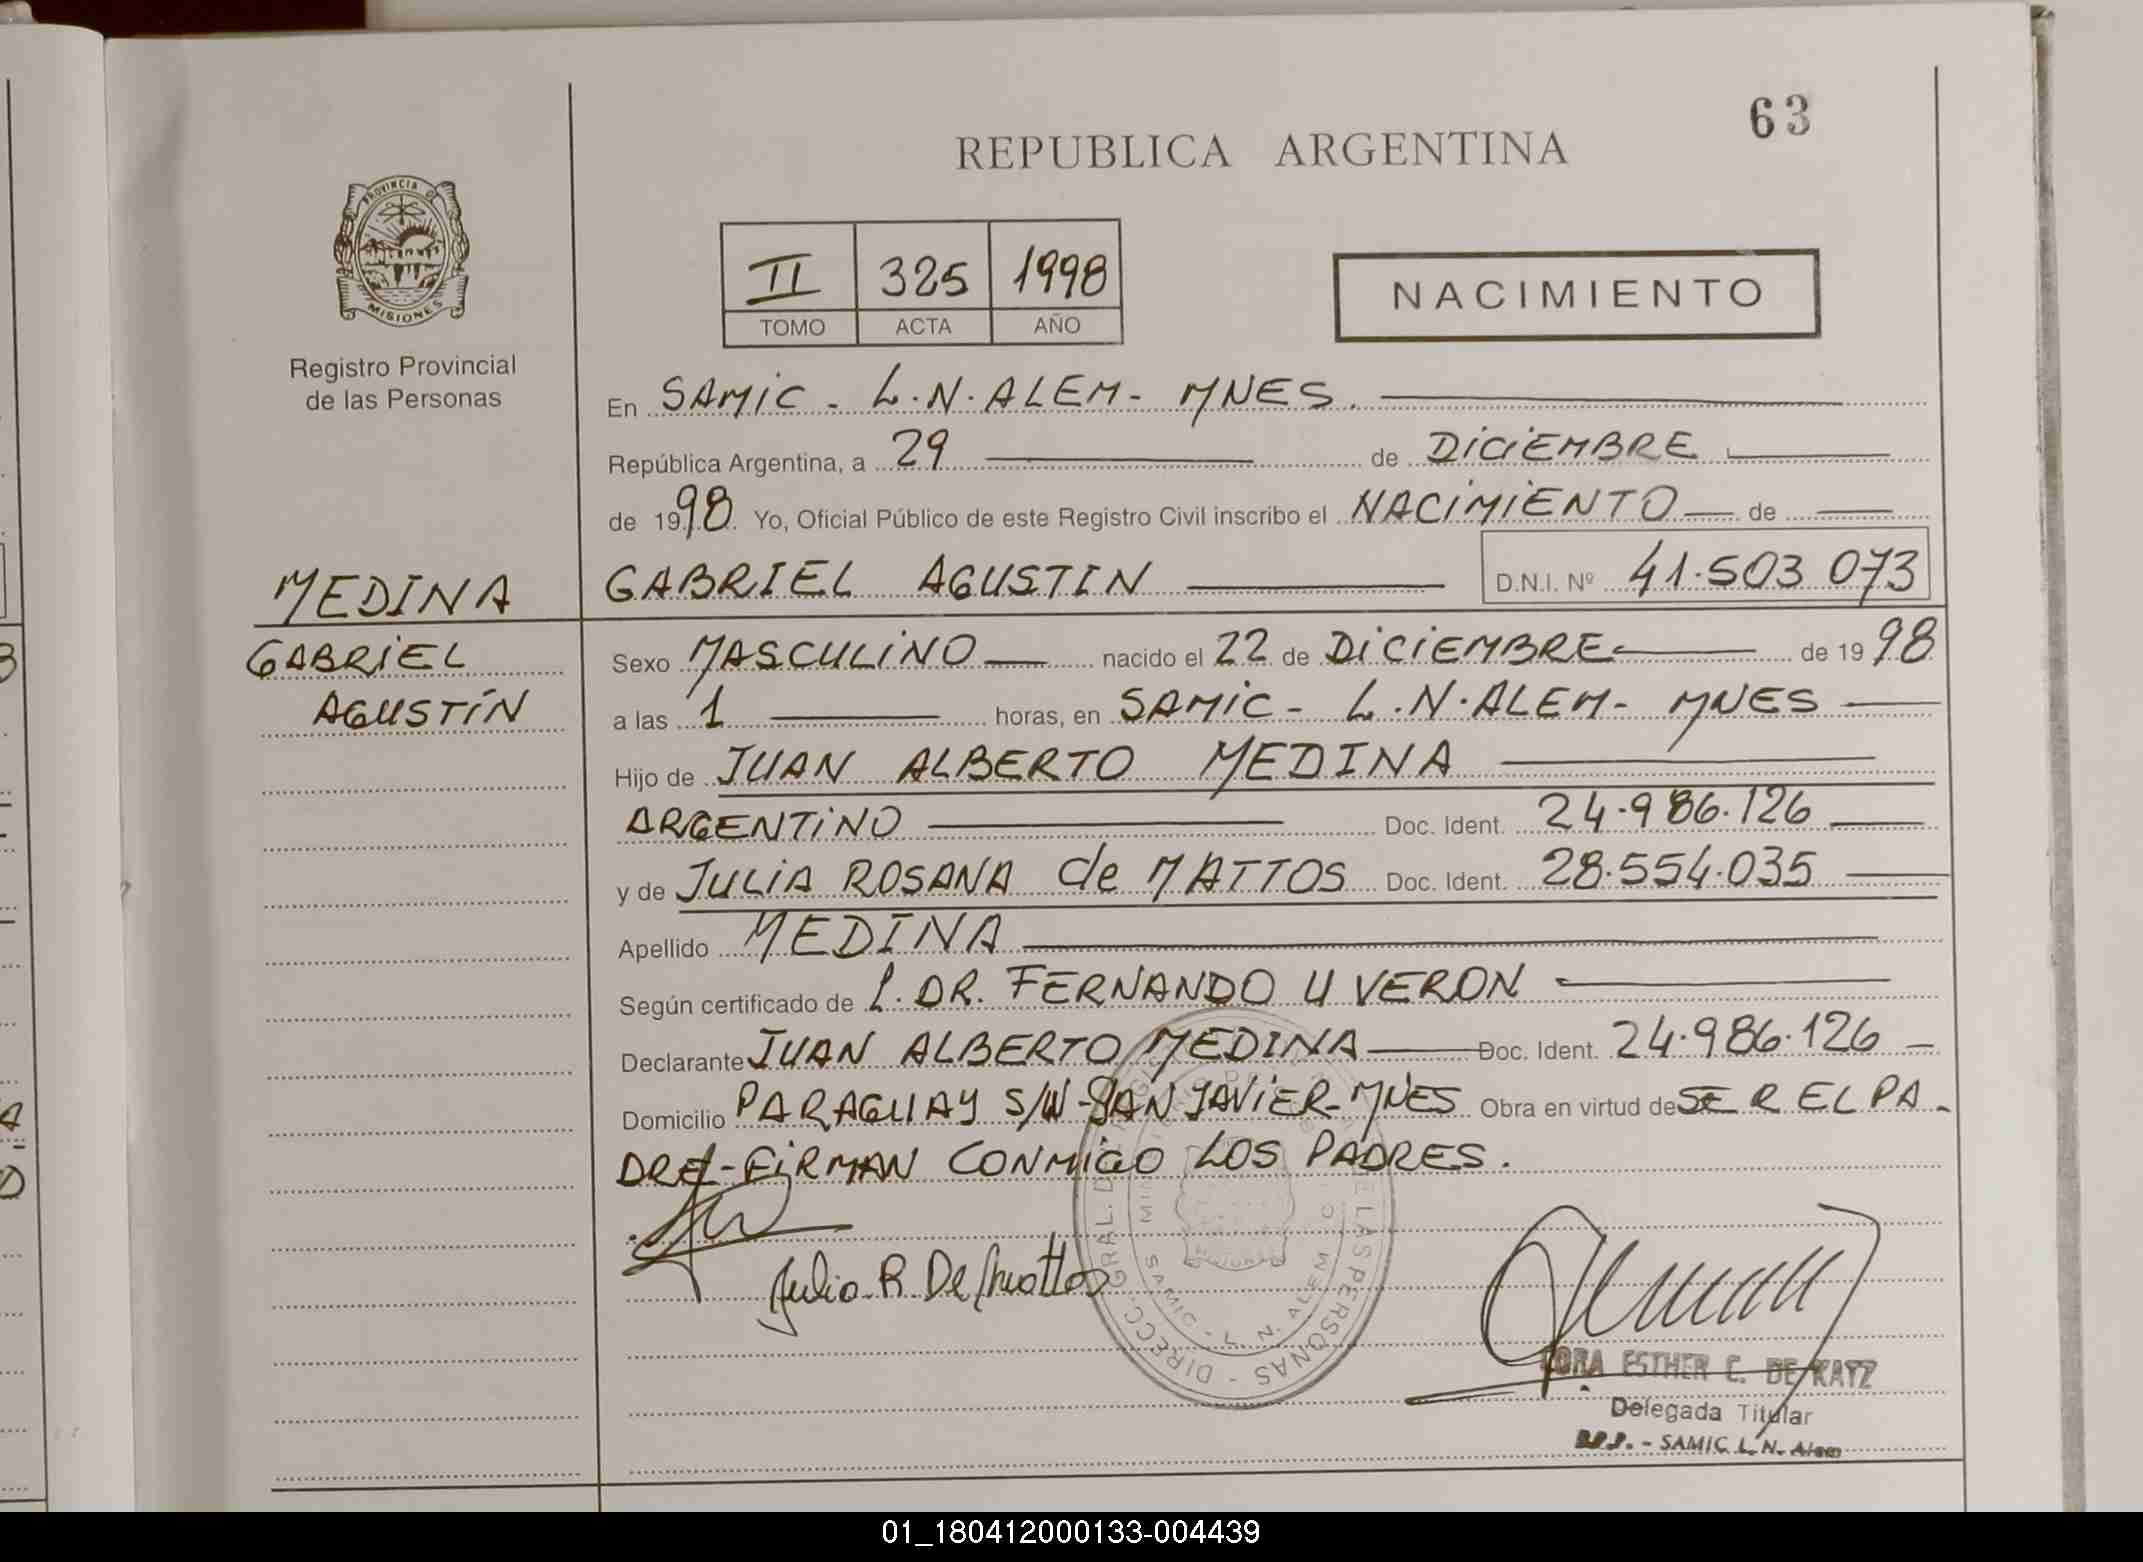 63
REPUBLICA ARGENTINA
PROVINCIA DE MISIONES
II 325 1998
TOMO ACTA AÑO
NACIMIENTO
Registro Provincial
de las Personas
En SAMIC - L.N.ALEM - MNES.
República Argentina, a 29 de DICIEMBRE
de 1998. Yo, Oficial Público de este Registro Civil inscribo el NACIMIENTO de
MEDINA
GABRIEL AGUSTIN D.N.I. Nº 41.503 073
GABRIEL
AGUSTÍN
Sexo MASCULINO nacido el 22 de DICIEMBRE de 1998
a las 1 horas, en SAMIC - L.N.ALEM - MNES
Hijo de JUAN ALBERTO MEDINA
ARGENTINO Doc. Ident. 24.986.126
y de JULIA ROSANA de MATTOS Doc. Ident. 28.554.035
Apellido MEDINA
Según certificado de DR. FERNANDO U VERON
Declarante JUAN ALBERTO MEDINA Doc. Ident. 24.986.126
Domicilio PARAGUAY S/N - SAN JAVIER - MNES Obra en virtud de SER EL PA-
DRE - FIRMAN CONMIGO LOS PADRES.
Julia R. De Mattos
DIRECC. GRAL. DE LAS PERSONAS
SAMIC - L. N. ALEM
ESTHER C. DE KATZ
Delegada Titular
- SAMIC L. N. Alem
01_180412000133-004439